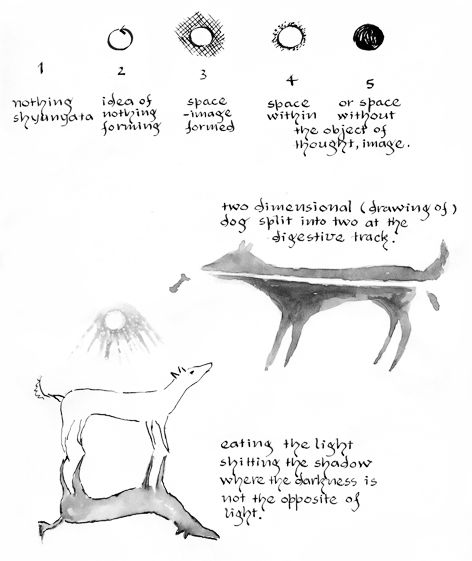 1
nothing
shyungata
2
idea of
nothing
forming
3
space
-image
formed
4
space
within
5
or space
without
the object of
thought, image.
two dimensional (drawing of)
dog split into two at the
digestive track.
eating the light
shitting the shadow
where the darkness is
not the opposite of
light.